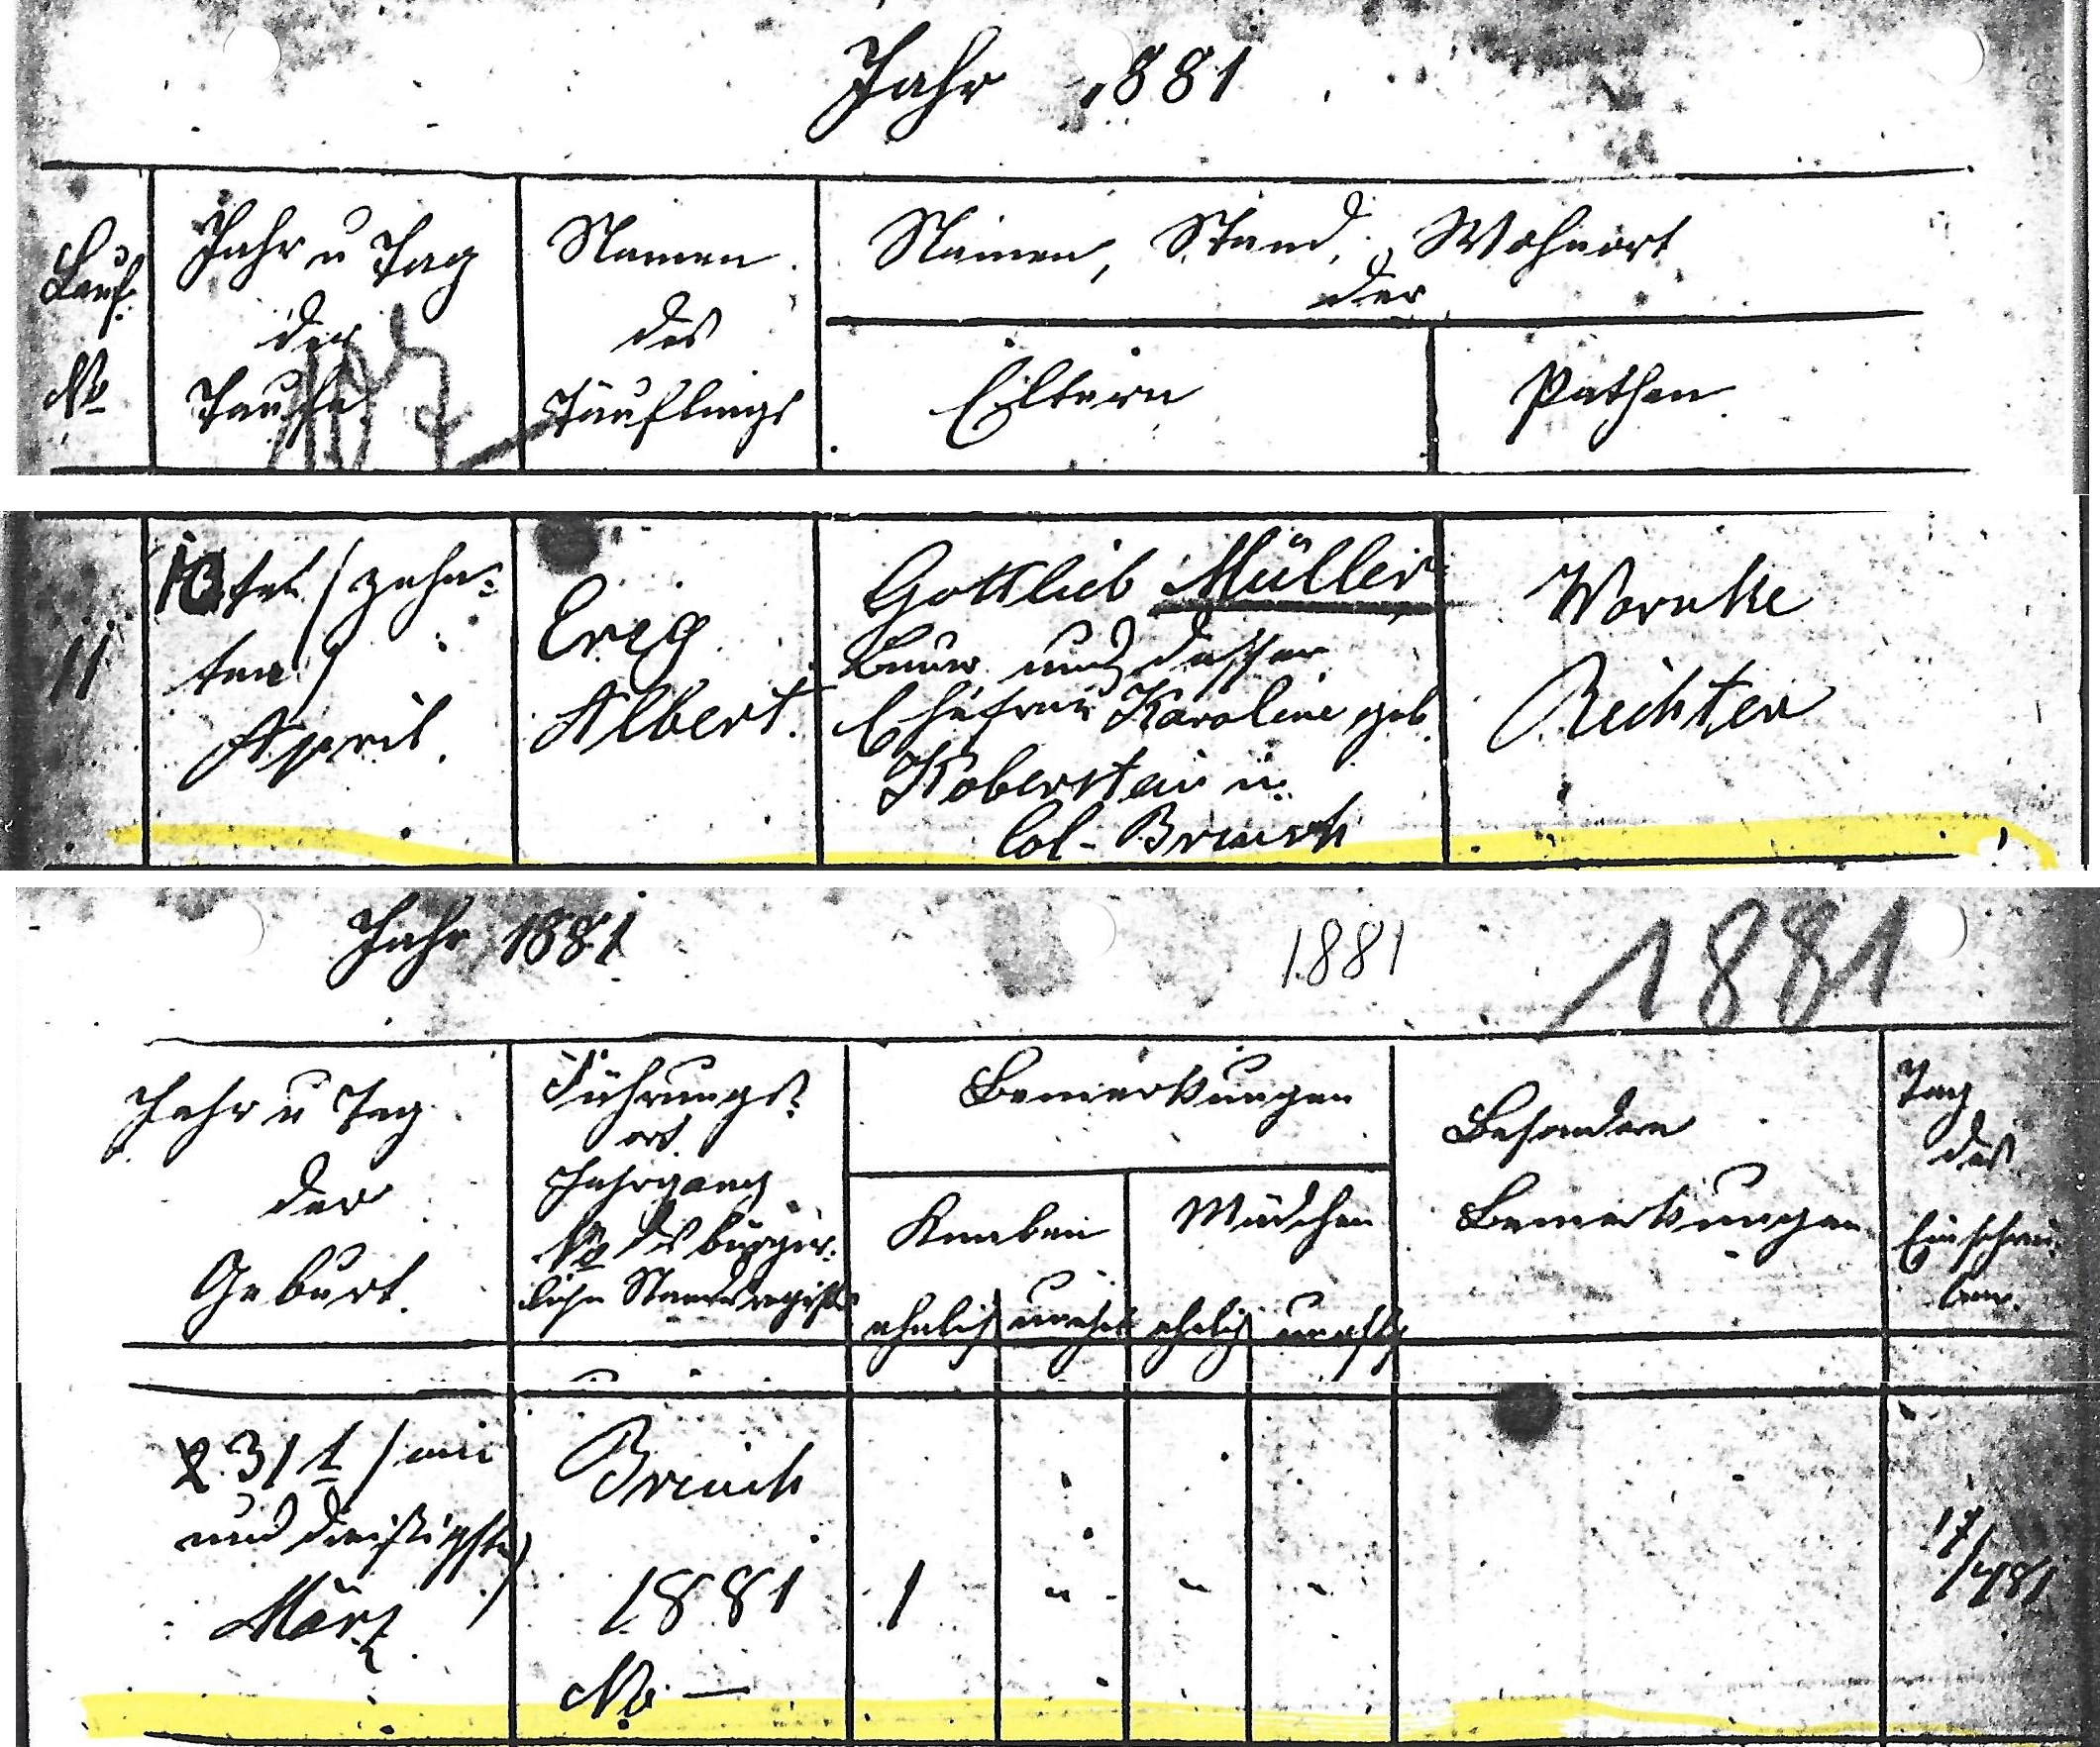 Jahr 1881
Lauf.
No
Jahr u Tag
der
Taufe
Namen
des
Täuflings
Namen, Stand, Wohnort
der
Eltern
Pathen
11
10ten (zehn-
ten)
April.
Erich
Albert.
Gottlieb Müller
Bauer und dessen
Ehefrau Karoline geb.
Koberstein in
Col- Bruch
Warnke
Richter
Jahr 1881
1881
1881
Jahr u Tag
der
Geburt.
Führungs-
ort
Jahrgang
No des bürger-
lichen Standesregisters
Bemerkungen
Knaben
Mädchen
ehelich unehel ehelich unehelich
Besondere
Bemerkungen
Tag
des
Einschrei-
bens.
31t (ein
und dreißigsten)
März
Bruch
1881
No —
1 " " "
17/4 81